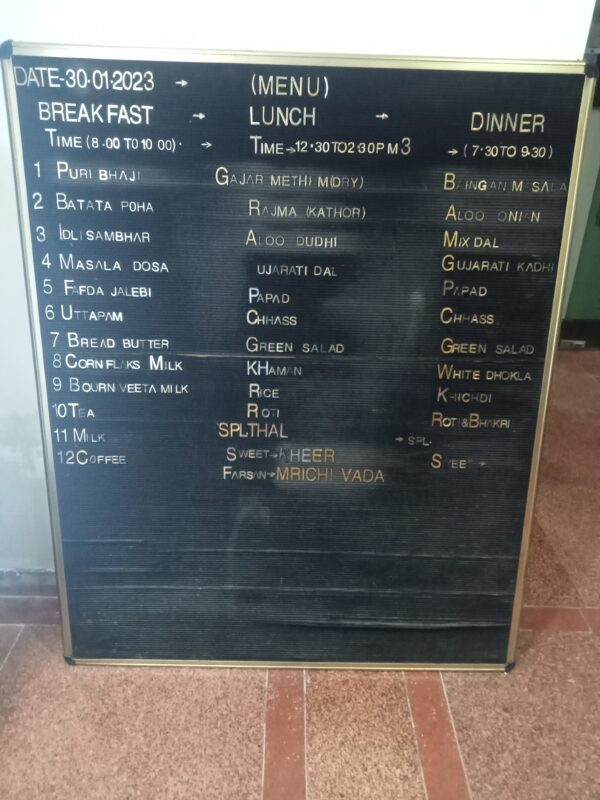 DATE-30-01-2023 → (MENU)
BREAKFAST → LUNCH → DINNER
TIME (8.00 TO 10 00). → TIME→12.30TO2:30PM3 → (7.30TO 9.30)
1 PURI BHAJI GAJAR METHI M(DRY) BAINGAN MASALA
2 BATATA POHA RAJMA (KATHOR) ALOO ONIAN
3 IDLI SAMBHAR ALOO DUDHI MIX DAL
4 MASALA DOSA UJARATI DAL GUJARATI KADHI
5 FAFDA JALEBI PAPAD PAPAD
6 UTTAPAM CHHASS CHHASS
7 BREAD BUTTER GREEN SALAD GREEN SALAD
8 CORN FLAKS MILK KHAMAN WHITE DHOKLA
9 BOURN VEETA MILK RICE KHICHDI
10 TEA ROTI ROTI&BHAKRI
11 MILK SPL.THAL → SPL.
12 COFFEE SWEET→KHEER SWEET→
FARSAN→MRICHI VADA